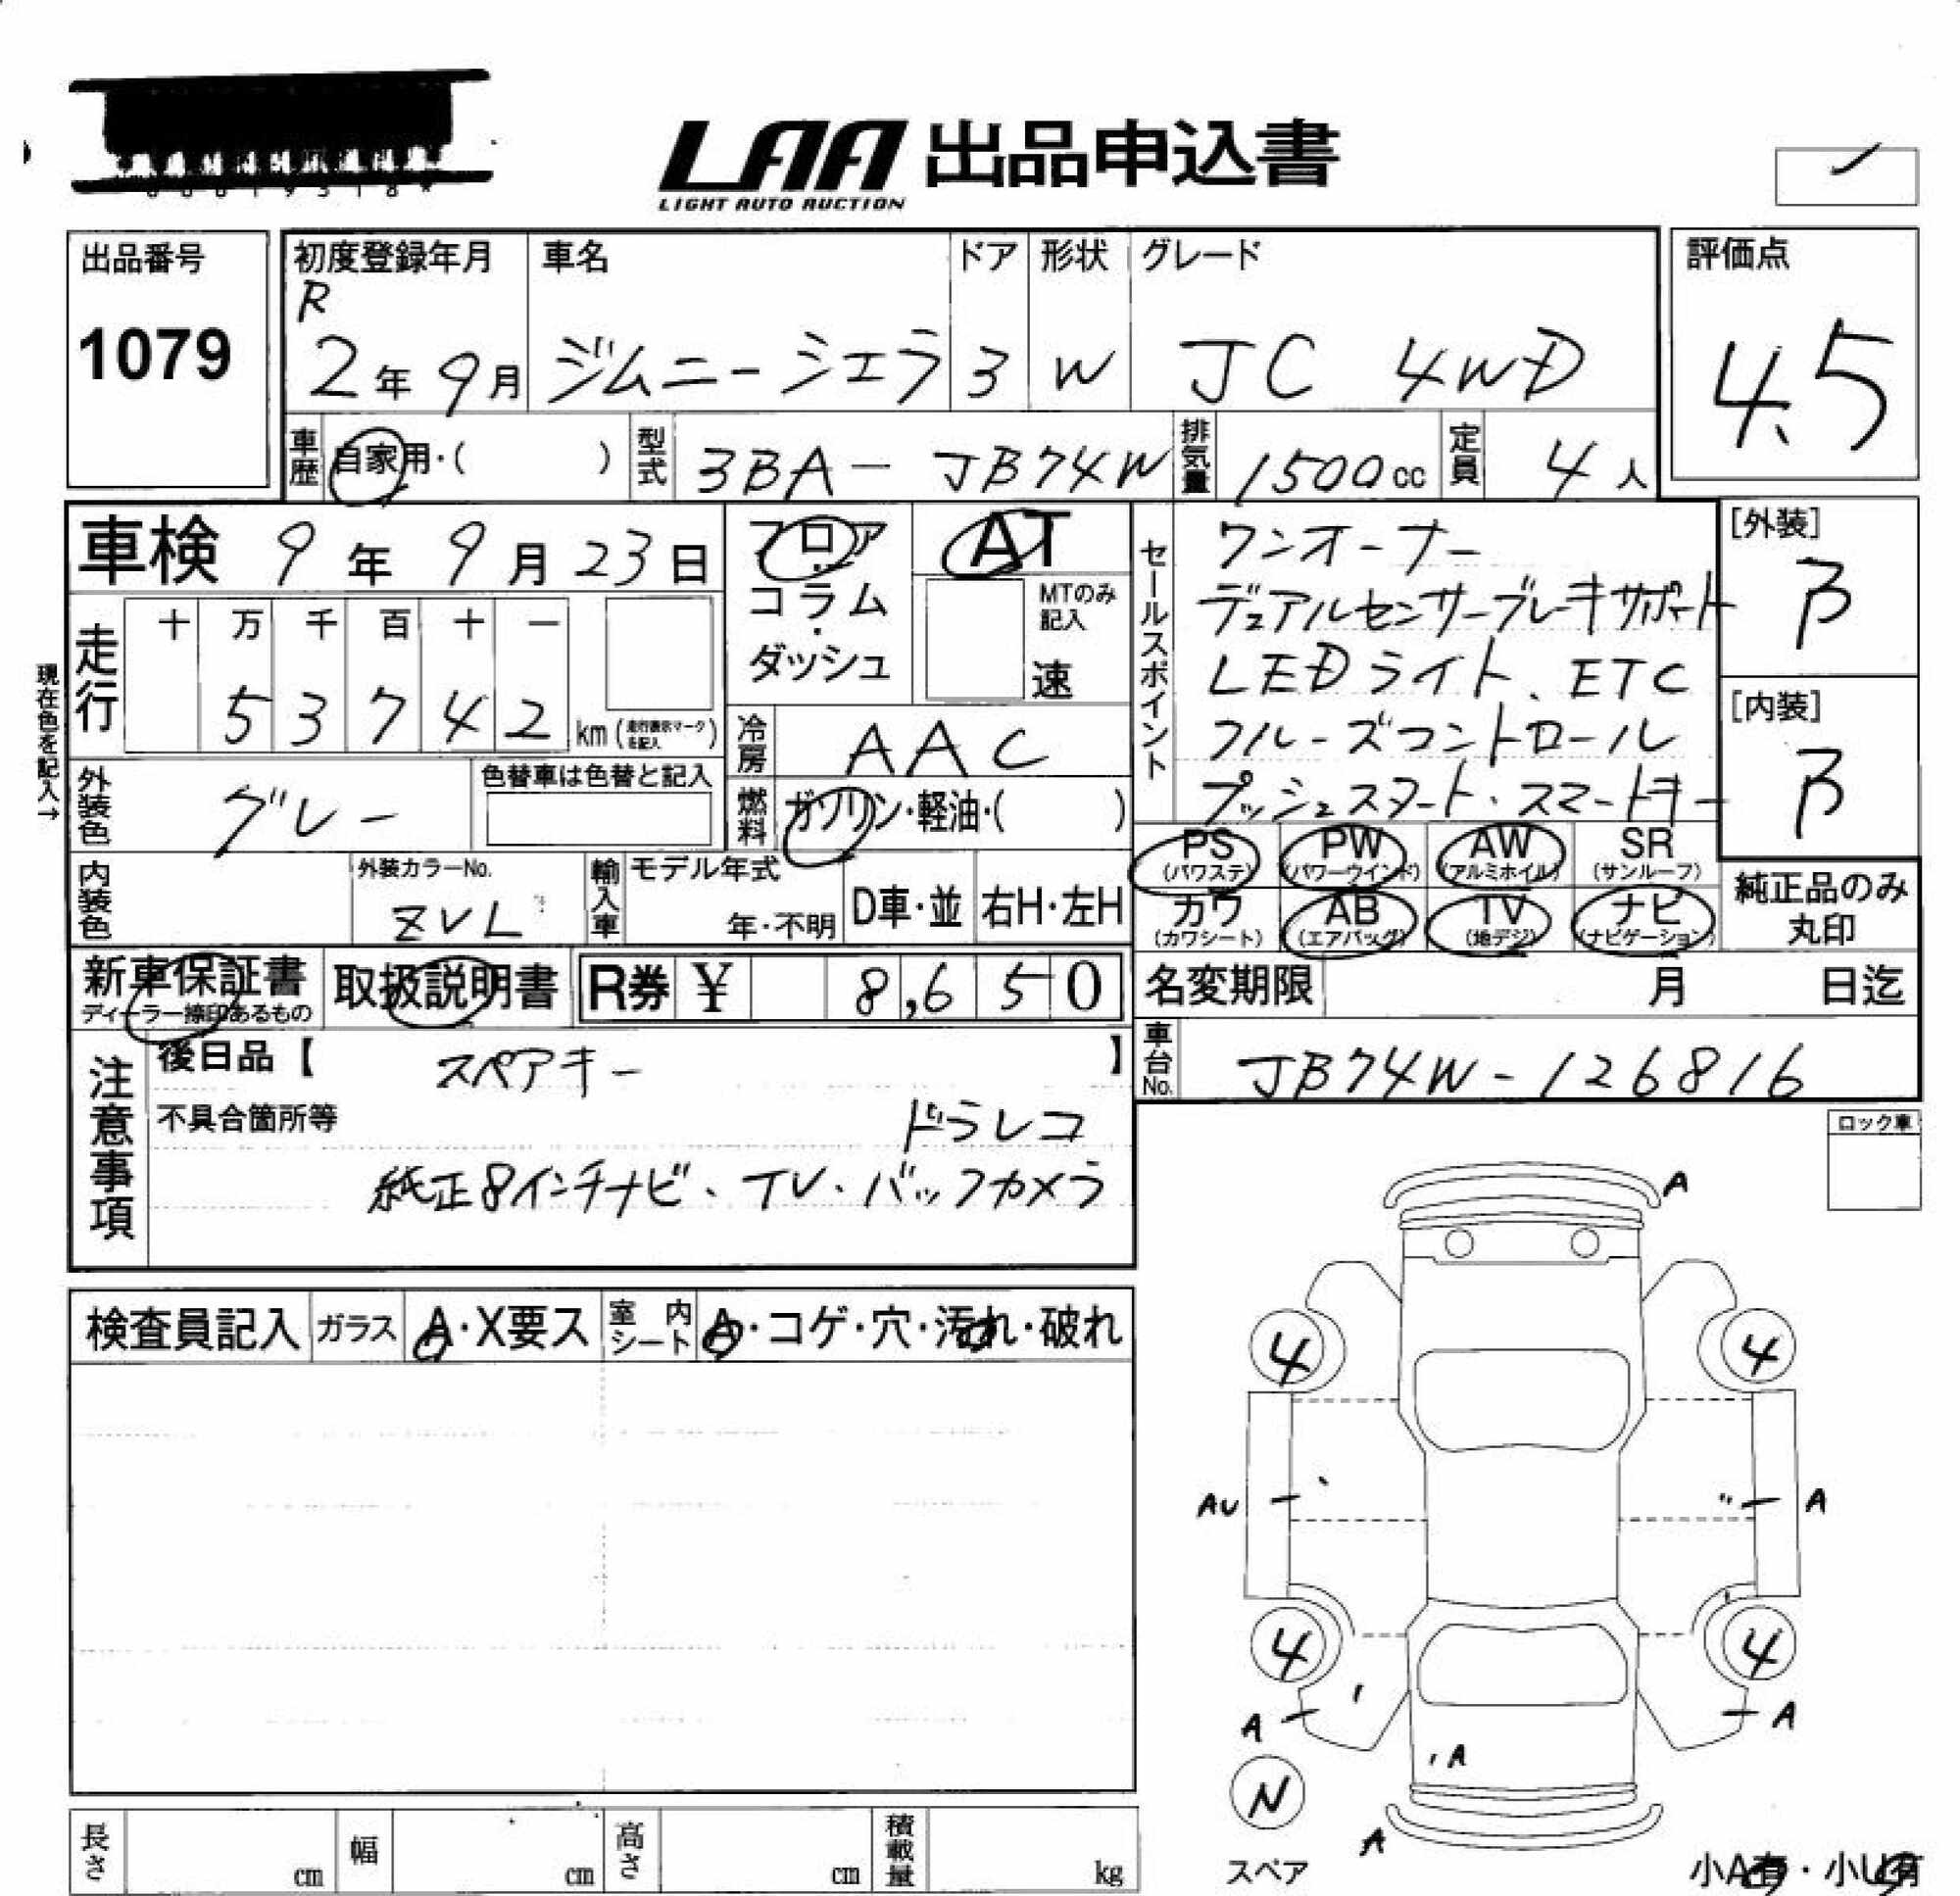 LAA 出品申込書
LIGHT AUTO AUCTION
出品番号
1079
初度登録年月
R
2年9月
車名
ジムニーシエラ
ドア
3
形状
W
グレード
JC 4WD
評価点
4.5
車歴 自家用・( )
型式 3BA-JB74W
排気量 1500cc
定員 4人
車検 9年9月23日
フロア
コラム
・
ダッシュ
AT
MTのみ記入
速
セールスポイント
ワンオーナー
デュアルセンサーブレーキサポート
LEDライト、ETC
クルーズコントロール
プッシュスタート・スマートキー
[外装]
B
[内装]
B
現在色を記入→
走行
十 万 千 百 十 一
5 3 7 4 2
km(走行表示マークを記入)
冷房 AAC
外装色 グレー
色替車は色替と記入
燃料 ガソリン・軽油・( )
内装色
外装カラーNo.
ZVL
輸入車
モデル年式
年・不明
D車・並
右H・左H
PS (パワステ)
PW (パワーウインド)
AW (アルミホイル)
SR (サンルーフ)
カワ (カワシート)
AB (エアバッグ)
TV (地デジ)
ナビ (ナビゲーション)
純正品のみ
丸印
新車保証書
ディーラー捺印あるもの
取扱説明書
R券 ¥ 8,650
名変期限 月 日迄
車台No. JB74W-126816
注意事項
後日品【 スペアキー 】
不具合箇所等
ドラレコ
純正8インチナビ、TV、バックカメラ
ロック車
検査員記入
ガラス A・X要ス
室内シート A・コゲ・穴・汚れ・破れ
A
4 4
AU A
4 4
A A
A
N
A
スペア
小A有・小U有
長さ cm
幅 cm
高さ cm
積載量 kg